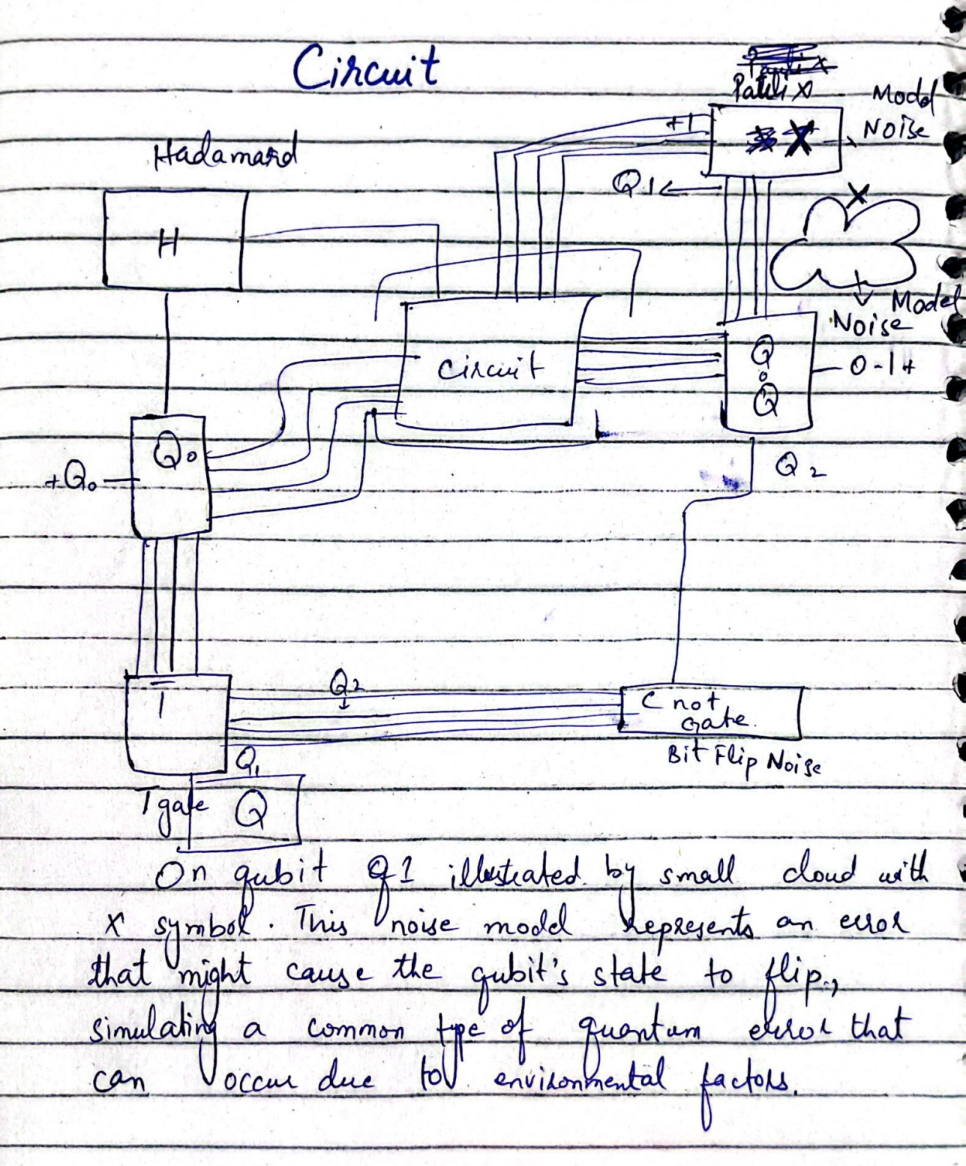 Circuit
Model
Noise
+1
X
Hadamard
Q1
X
H
Model
Noise
Circuit
Q
o
Q
0-1+
Q0
+Q0
Q2
Q2
T
C not
Gate.
Bit Flip Noise
Q1
T gate
Q
On qubit Q1 illustrated by small cloud with
X symbol. This noise model represents an error
that might cause the qubit's state to flip,
simulating a common type of quantum error that
can occur due to environmental factors.